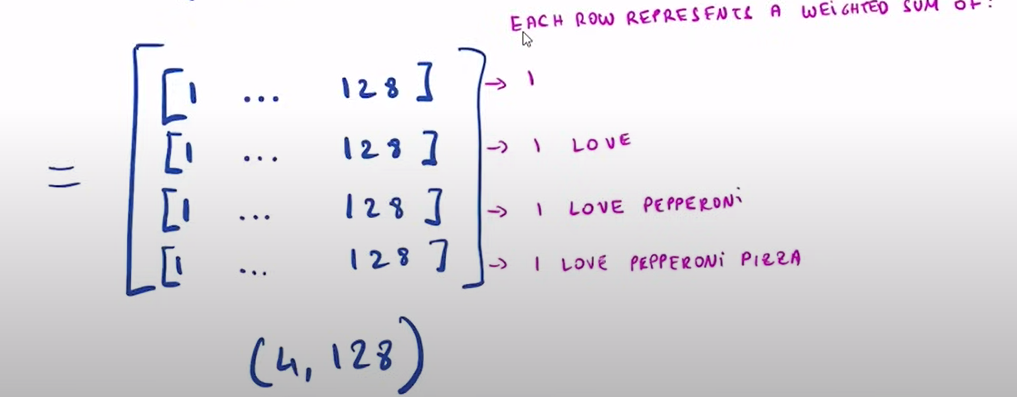 EACH ROW REPRESENTS A WEIGHTED SUM OF:
[1 ... 128] → I
= [1 ... 128] → I LOVE
[1 ... 128] → I LOVE PEPPERONI
[1 ... 128] → I LOVE PEPPERONI PIZZA
(4, 128)